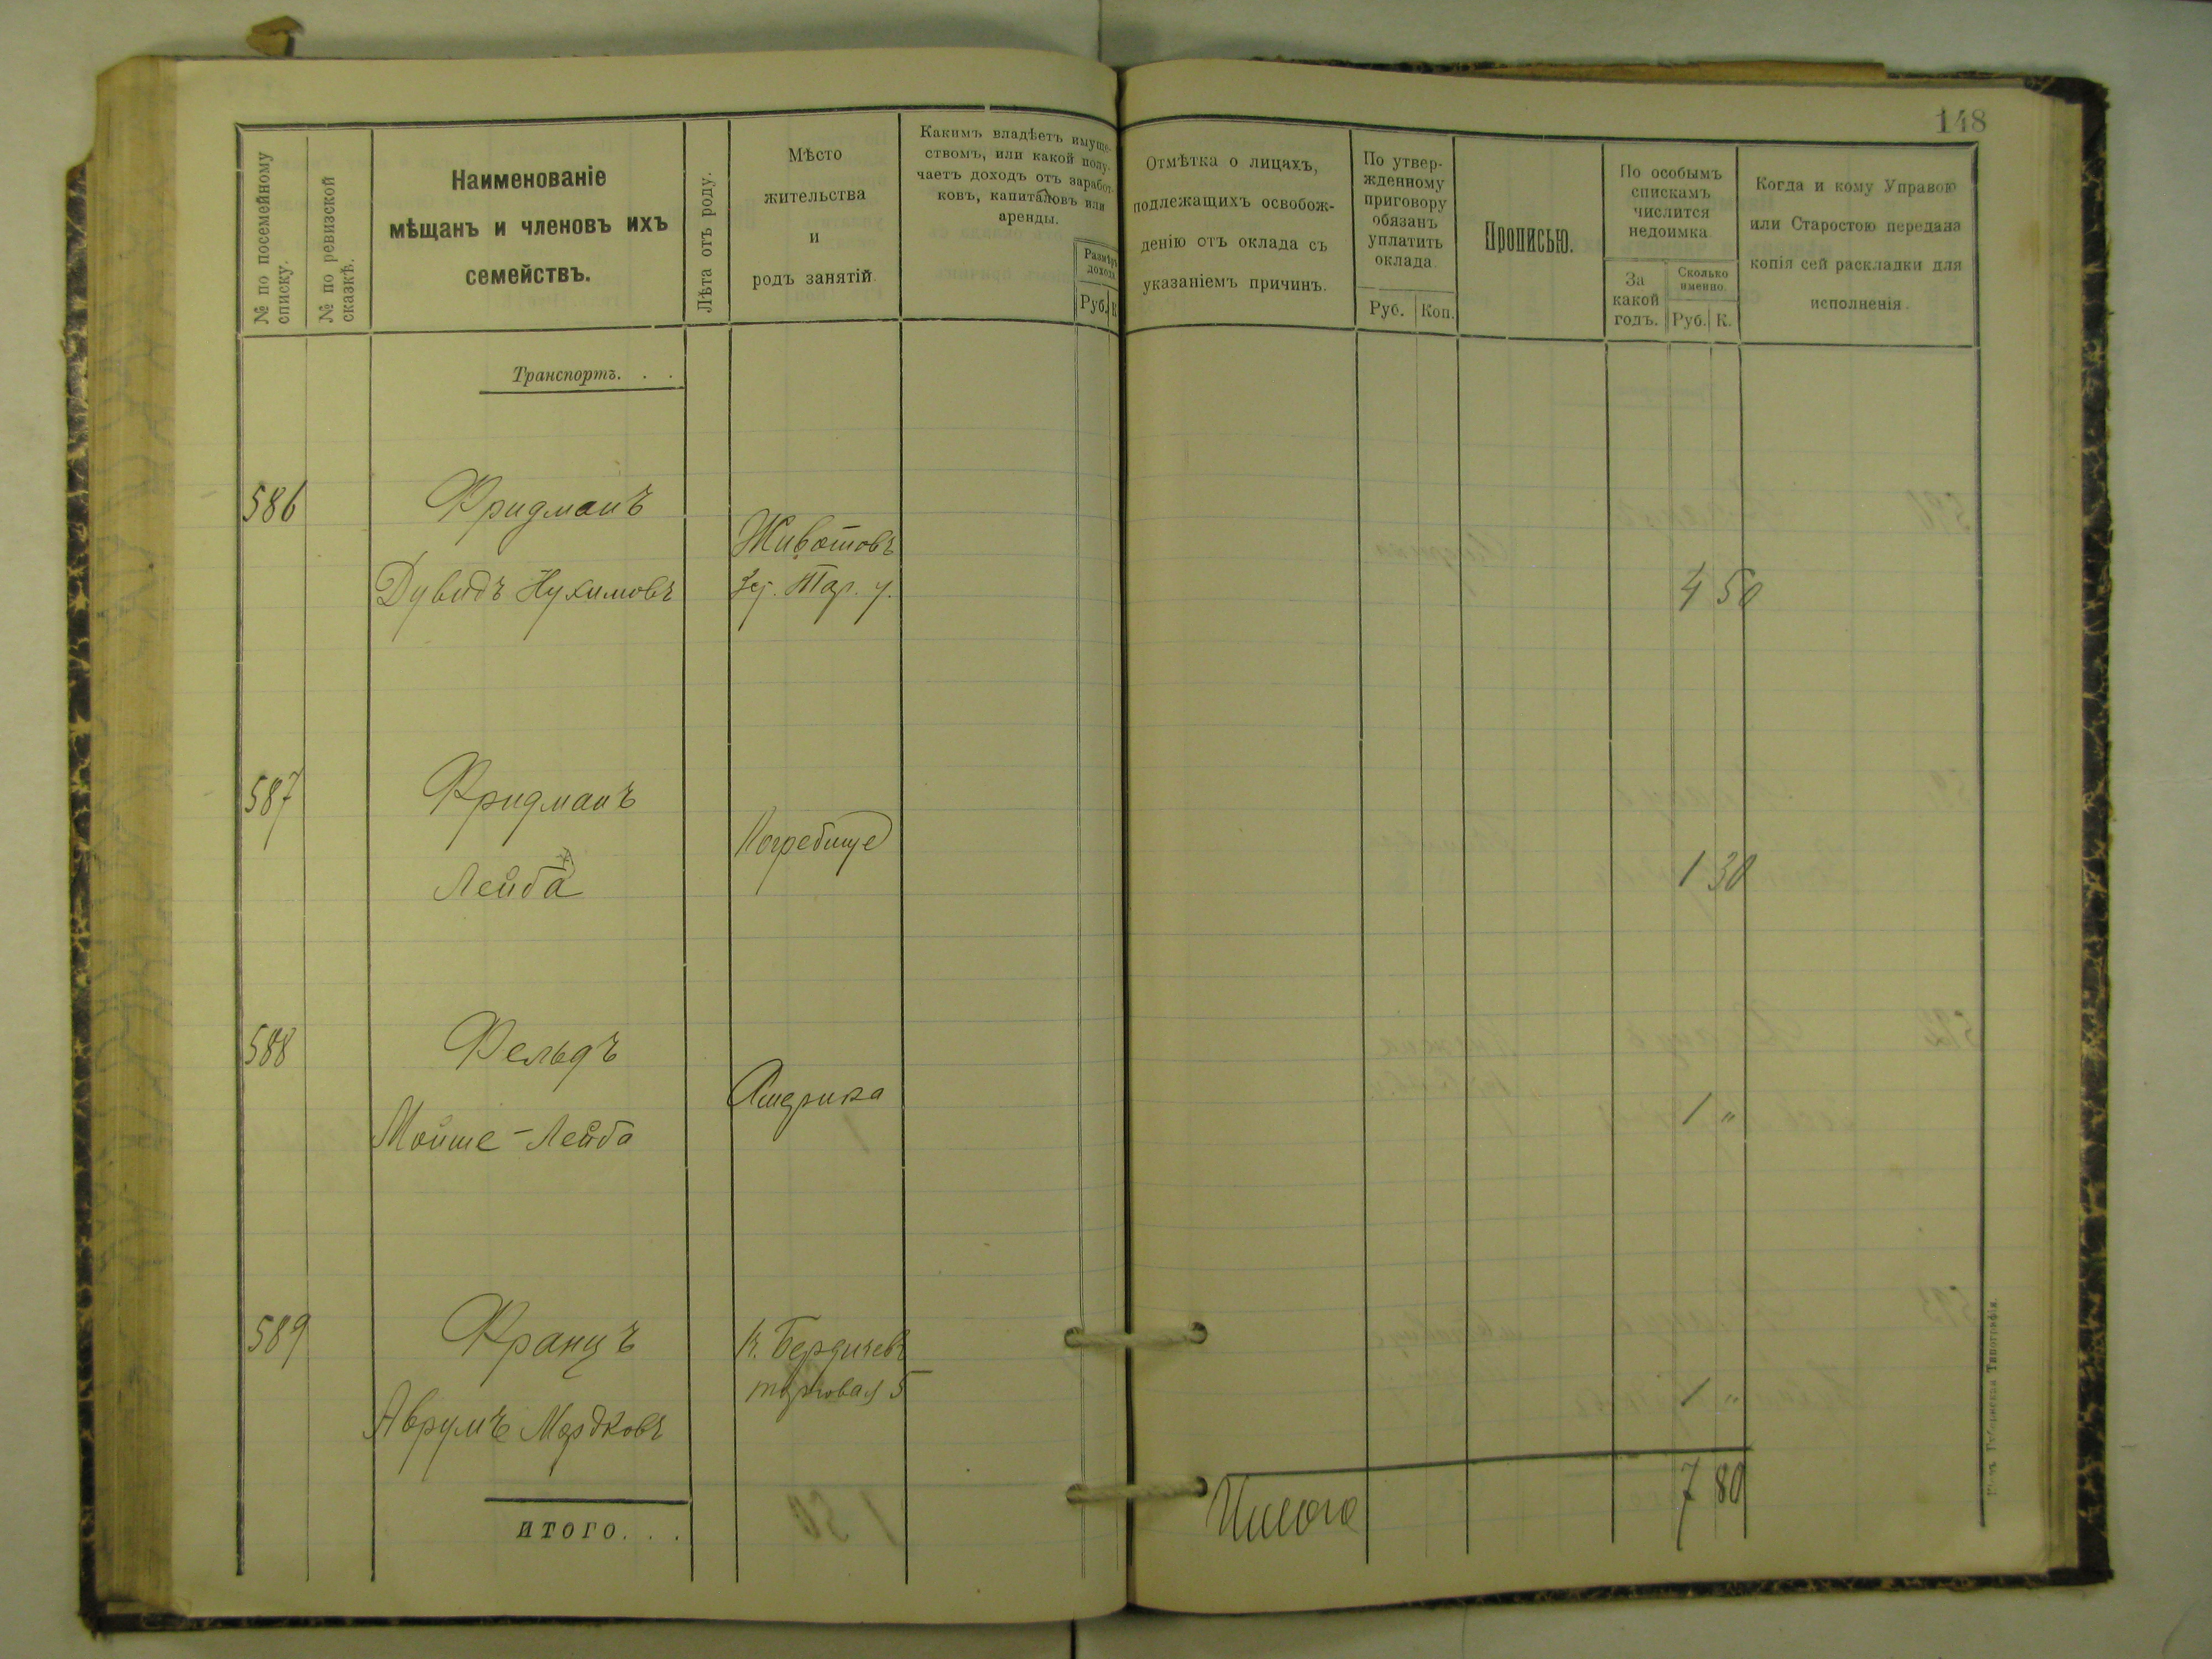 148
№ по посемейному
списку.
№ по ревизской
сказкѣ.
Наименованіе
мѣщанъ и членовъ ихъ
семействъ.
Лѣта отъ роду.
Мѣсто
жительства
и
родъ занятій.
Какимъ владѣетъ имуще-
ствомъ, или какой полу-
чаетъ доходъ отъ заработ-
ковъ, капиталовъ или
аренды.
Размѣръ
дохода
Руб. К
Отмѣтка о лицахъ,
подлежащихъ освобож-
денію отъ оклада съ
указаніемъ причинъ.
По утвер-
жденному
приговору
обязанъ
уплатить
оклада
Руб. Коп.
Прописью.
По особымъ
спискамъ
числится
недоимка
За
какой
годъ.
Сколько
именно.
Руб. К.
Когда и кому Управою
или Старостою передана
копія сей раскладки для
исполненія.
Транспортъ. . .
586 Фридманъ
Животовъ
Дувидъ Нухимовъ Тар. у. 4 50
587 Фридманъ
Погребище
Лейба 1 30
588 Фельдъ
Америка
Мойше-Лейба 1 "
589 Францъ
Бердичевъ
5
Аврумъ Мордковъ 1 "
Итого 7 80
ИТОГО. . .
Губернская Типографія.